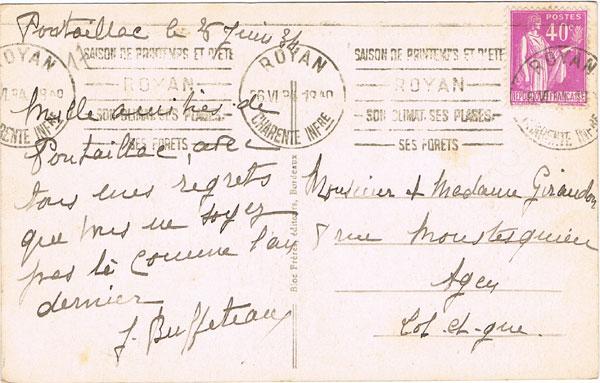 Pontaillac le 25 Juin 34
ROYAN
26 VI 34 18 40
CHARENTE INFRE
SAISON DE PRINTEMPS ET D'ÉTÉ
ROYAN
SON CLIMAT-SES PLAGES-
SES FORETS
SAISON DE PRINTEMPS ET D'ÉTÉ
ROYAN
SON CLIMAT-SES PLAGES-
SES FORETS
ROYAN
CHARENTE INFRE
POSTES
40c
RÉPUBLIQUE FRANÇAISE
Mille amitiés de
Pontaillac, avec
tous mes regrets
que vous ne soyez
pas là comme l'an
dernier
J. Buffeteau
Bloc Frères, éditeurs, Bordeaux
Monsieur et Madame Giraudon
8 rue Moustesquieu
Agen
Lot-et-gne.